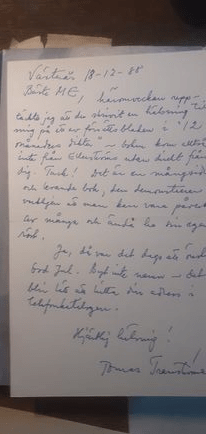 Västerås 18-12-88
Bästa ME, häromveckan upp-
täckte jag att du skrivit en hälsning till
mig på ett av försättsbladen i "12
månaders dikter – boken kom alltså
inte från utan direkt från
dig. Tack! Det är en mångsidig
och levande bok, den demonstrerar
verkligen att man kan vara påverkad
av många och ändå ha sin egen
röst.
Ja, då var det dags att önska
God Jul. Byt inte namn – det
blir lätt att hitta din adress i
telefonkatalogen.
Hjärtlig hälsning!
Tomas Tranströmer